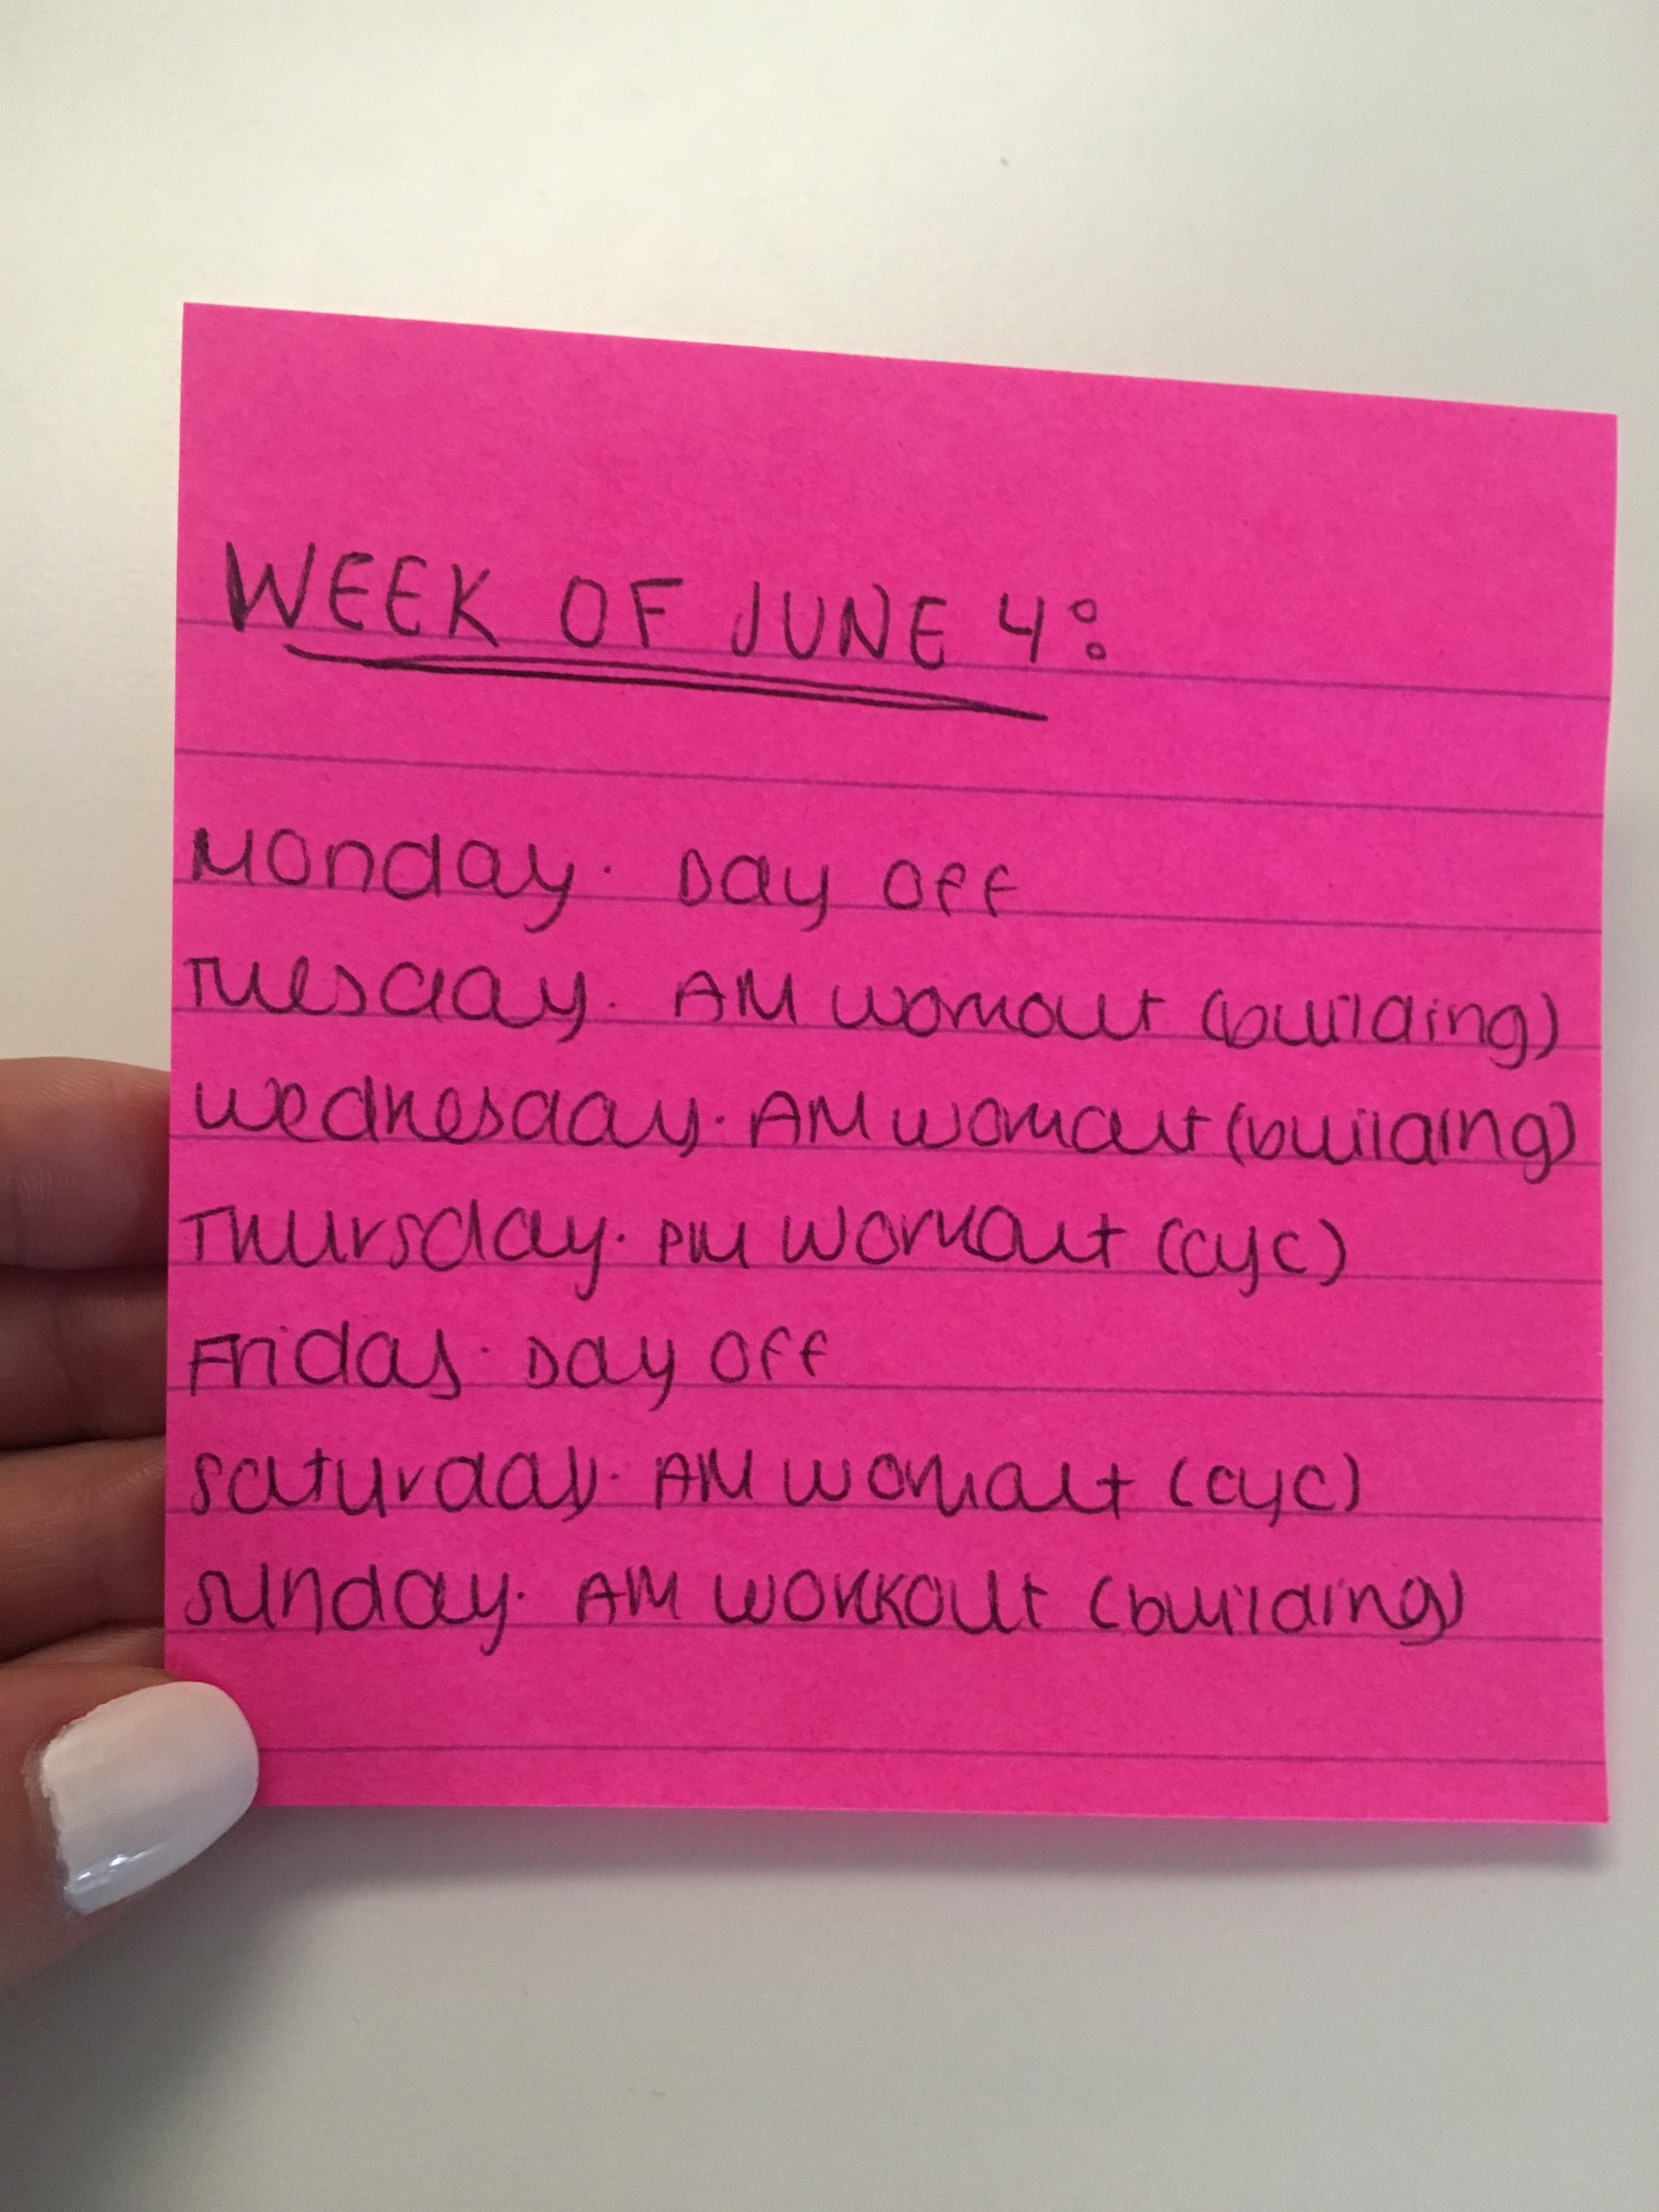 WEEK OF JUNE 4:
Monday. Day Off
Tuesday. AM workout (building)
Wednesday. AM workout (building)
Thursday. PM workout (cyc)
Friday. Day Off
Saturday. AM workout (cyc)
Sunday. AM workout (building)